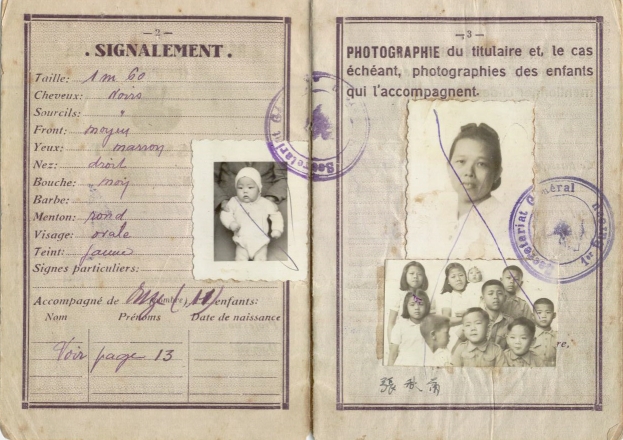 —2—
. SIGNALEMENT .
Taille: 1 m 60
Cheveux: Noirs
Sourcils: "
Front: moyen
Yeux: marron
Nez: droit
Bouche: moy
Barbe:
Menton: rond
Visage: ovale
Teint: jaune
Signes particuliers:
Accompagné de (11) enfants:
Nom Prénoms Date de naissance
Voir page 13
—3—
PHOTOGRAPHIE du titulaire et, le cas
échéant, photographies des enfants
qui l'accompagnent.
Secrétariat Général
Secrétariat Général
張